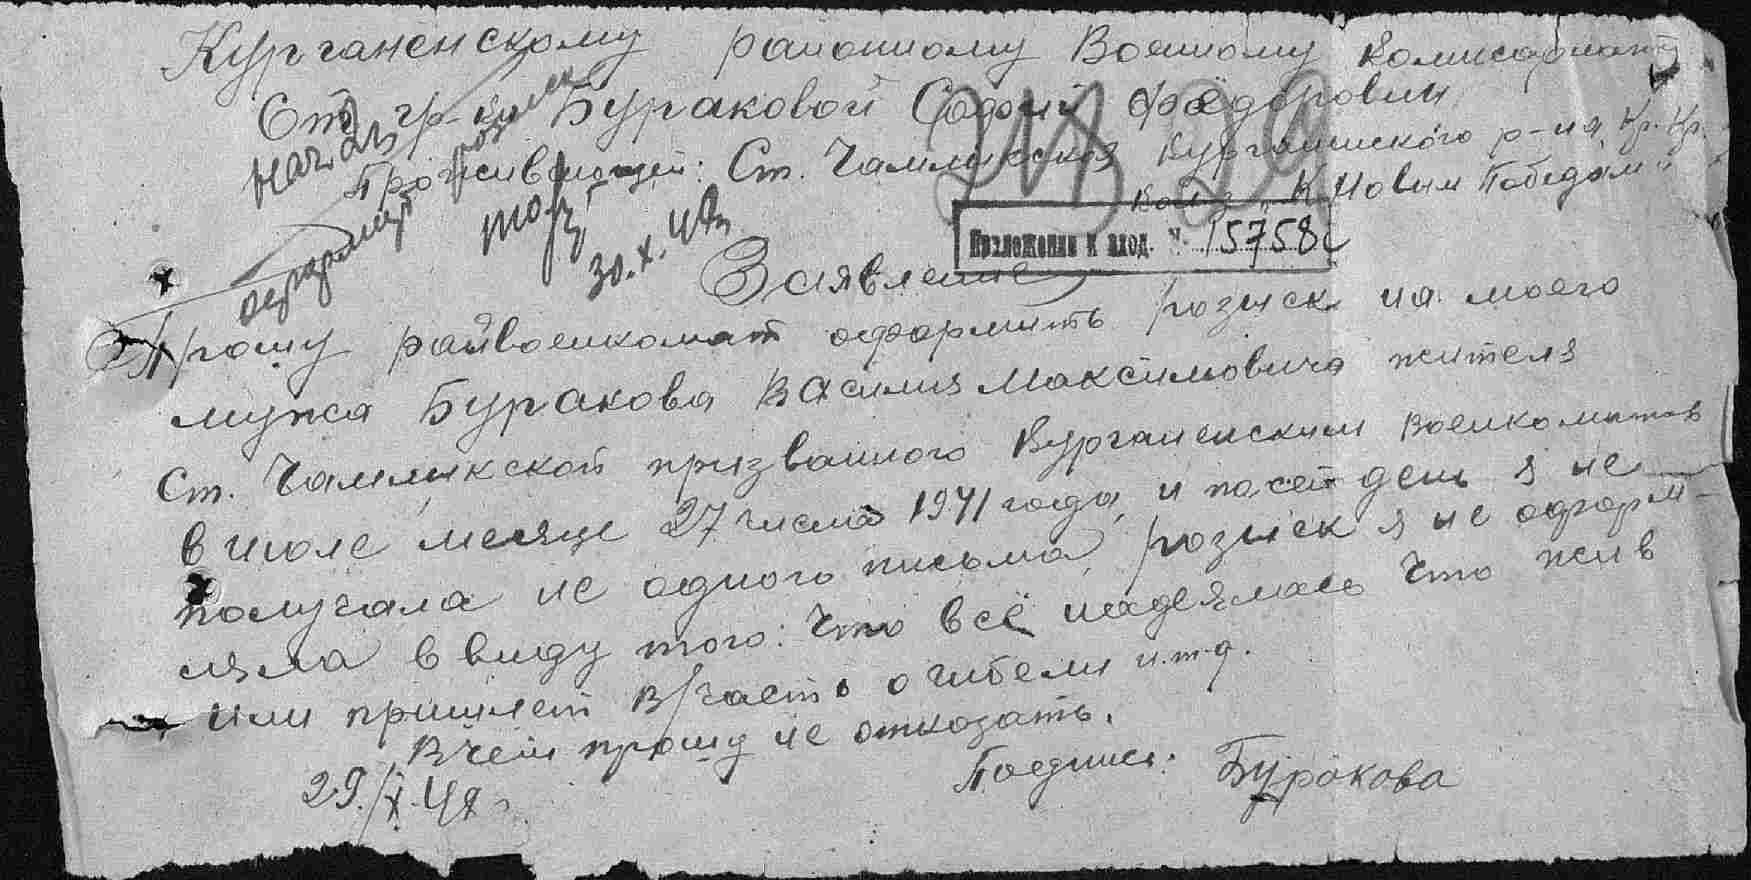 Курганенскому районному Военному Комисариату
От гр-ки Бураковой Софии Фёдоровны
Проживающей: Ст. Чамлыкская Курганинского р-на, Кр. Кр.
"К Новым Победам"
Нач. 2ч
оформить розыск
30.X.48
Приложение к вход. № 15758с
Заявление
Прошу райвоенкомат оформить розыск на моего
мужа Буракова Василия Максимовича жителя
Ст. Чамлыкской призванного Курганенским военкоматов
в июле месяце 27 числа 1941 года, и посей день я не
получала не одного письма, розыск я не оформ-
ляла ввиду того: что всё надеялась что жив
или пришлет в/часть о гибели и.т.д.
В чем прошу не отказать.
29/X.48 г Подпись: Буракова